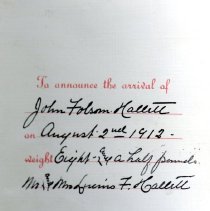 To announce the arrival of
John Folsom Hallett
on August 2nd 1912-
weight Eight - & a half pounds.
Mr & Mrs F. Hallett